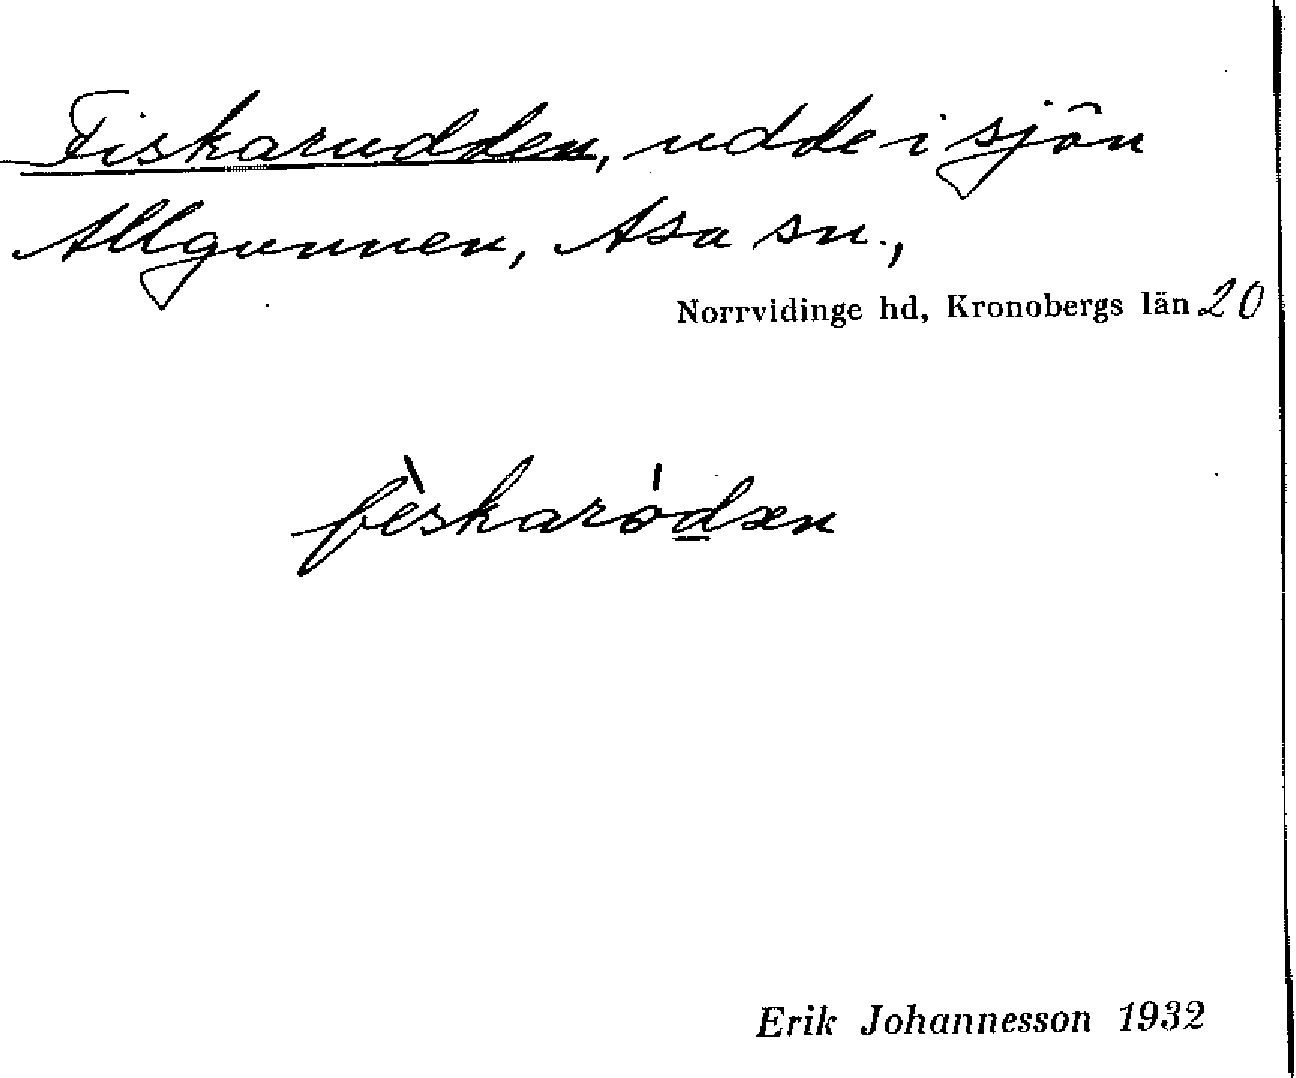 Fiskarudden, udde i sjön
Allgunnen, Asa sn.,
Norrvidinge hd, Kronobergs län 20
fèskarødæn
Erik Johannesson 1932